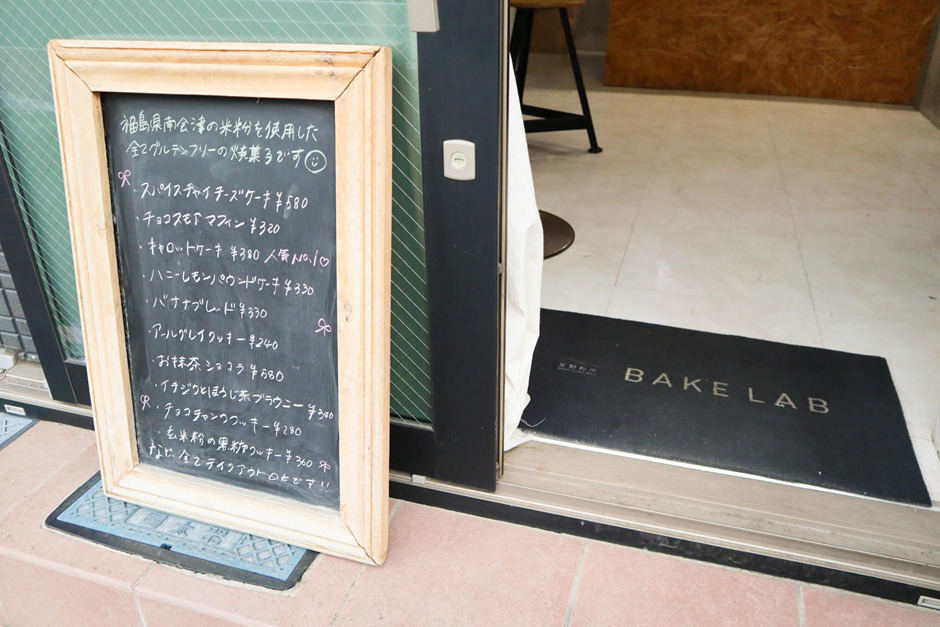 福島県南会津の米粉を使用した
全てグルテンフリーの焼菓子です
・スパイスチャイチーズケーキ ¥580
・チョコスモアマフィン ¥320
・キャロットケーキ ¥380 人気No.1♡
・ハニーレモンパウンドケーキ ¥330
・バナナブレッド ¥330
・アールグレイクッキー ¥240
・お抹茶ショコラ ¥580
・イチジクとほうじ茶ブラウニー ¥380
・チョコチャンククッキー ¥280
・玄米粉の黒糖クッキー ¥360
など、全てテイクアウトOKです!!
BAKE LAB